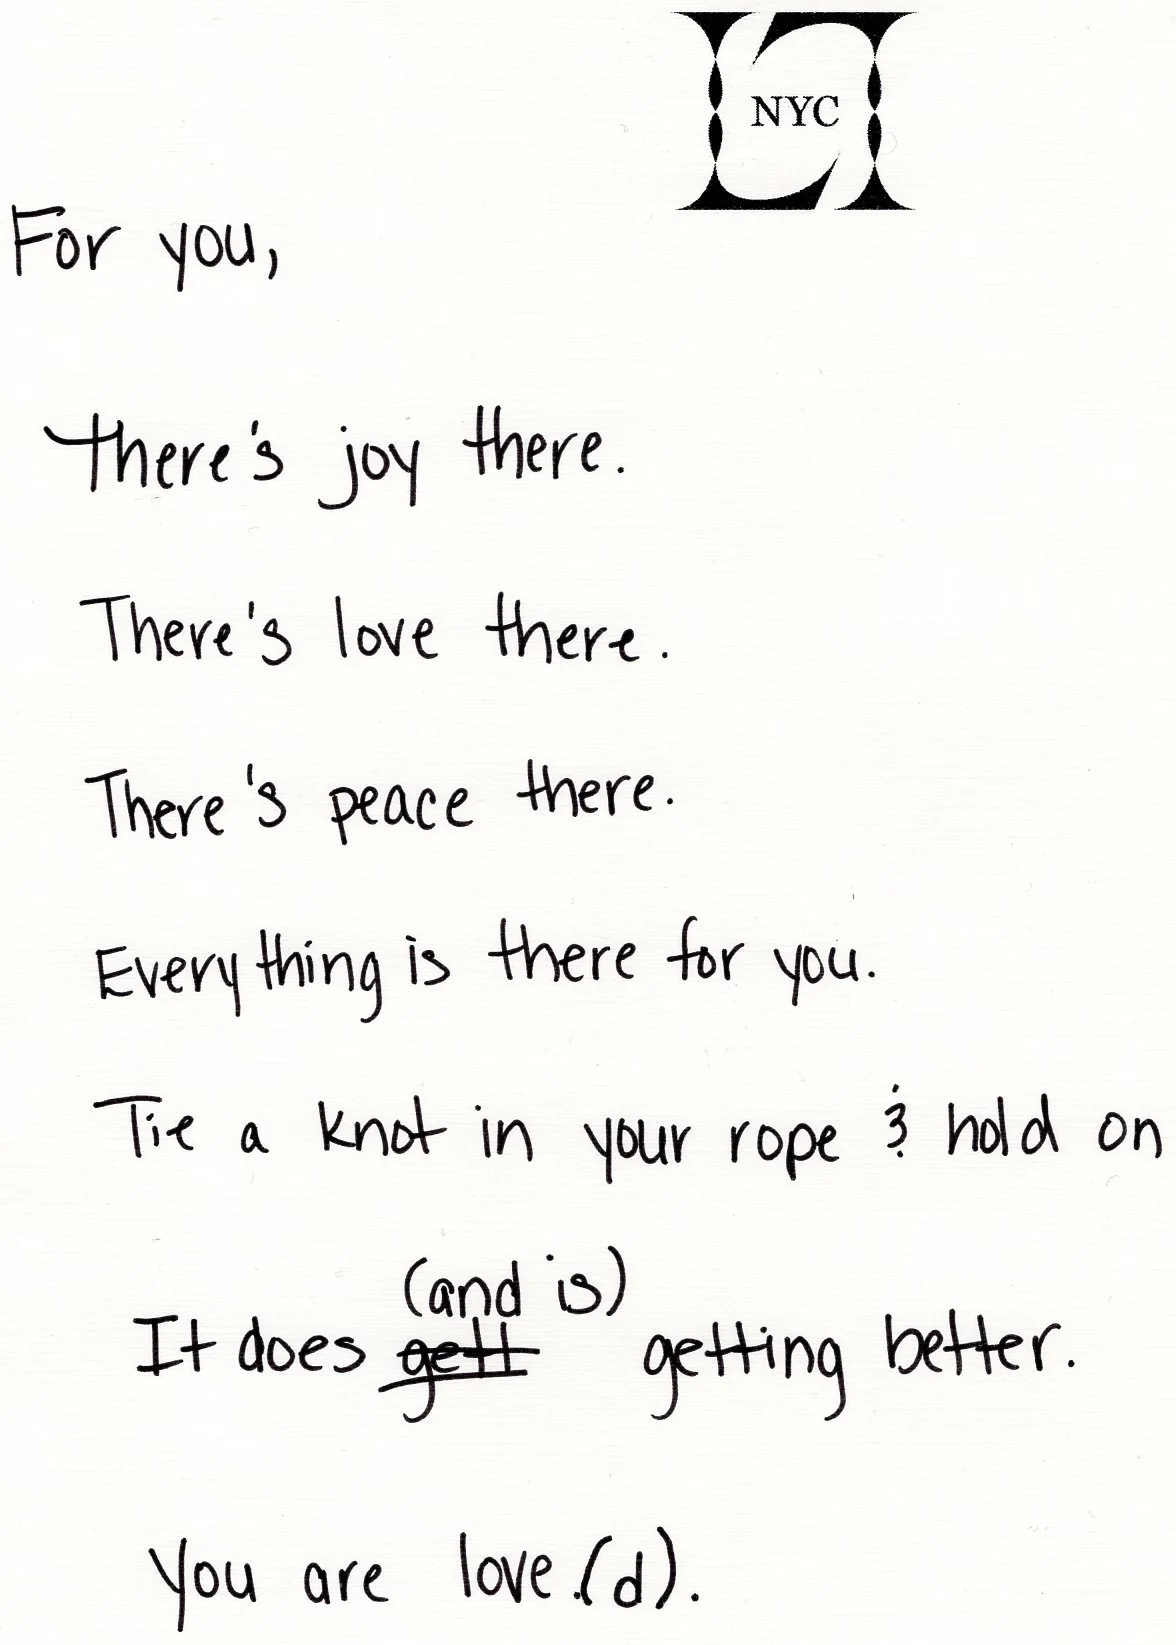 NYC
For you,
There's joy there.
There's love there.
There's peace there.
Everything is there for you.
Tie a knot in your rope & hold on
(and is)
It does gett getting better.
You are love.(d).